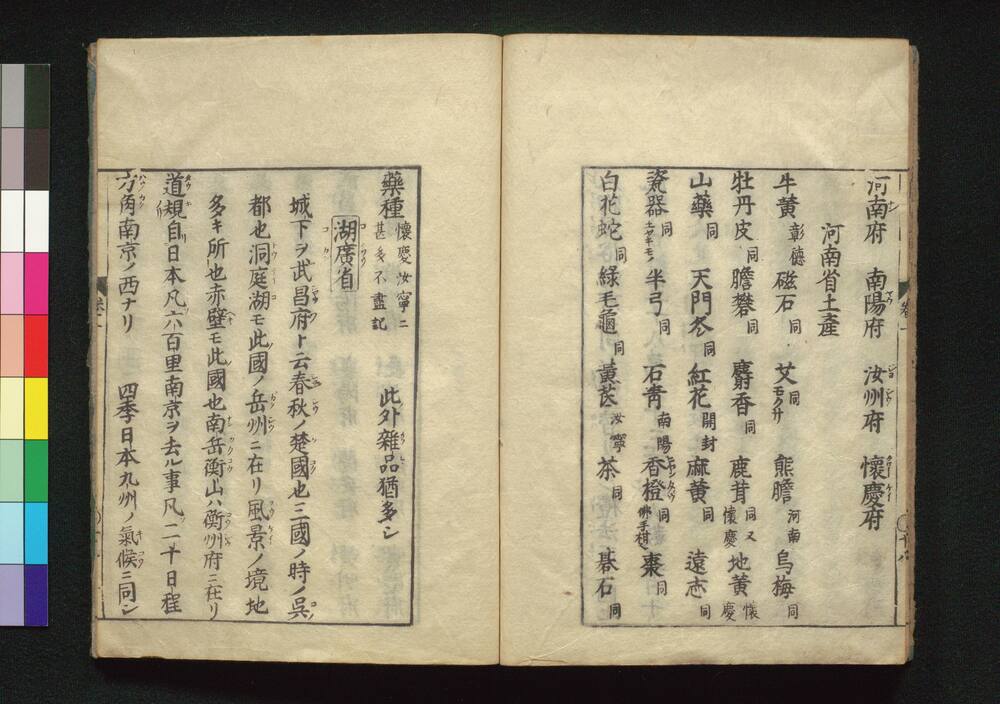 河南府　南陽府　汝州府　懷慶府
河南省土産
牛黃 彰德 磁石 同 艾 同 モクサ 熊膽 河南 烏梅 同
牡丹皮 同 膽礬 同 麝香 同 鹿茸 同又懷慶 地黃 懷慶
山藥 同 天門冬 同 紅花 開封 麻黃 同 遠志 同
瓷器 同 半弓 同 石青 南陽 香橙 同 棗 同
白花蛇 同 綠毛龜 同 黃芪 汝寧 茶 同 碁石 同
藥種 懷慶汝寧ニ甚多不盡記 此外雜品猶多シ
湖廣省
城下ヲ武昌府ト云春秋ノ楚國也三國ノ時ノ吳ノ
都也洞庭湖モ此國ノ岳州ニ在リ風景ノ境地
多キ所也赤壁モ此國也南岳衡山ハ衡州府ニ在リ
道規自日本凡六百里南京ヲ去ル事凡二十日程
方角南京ノ西ナリ　四季日本九州ノ氣候ニ同シ
卷二